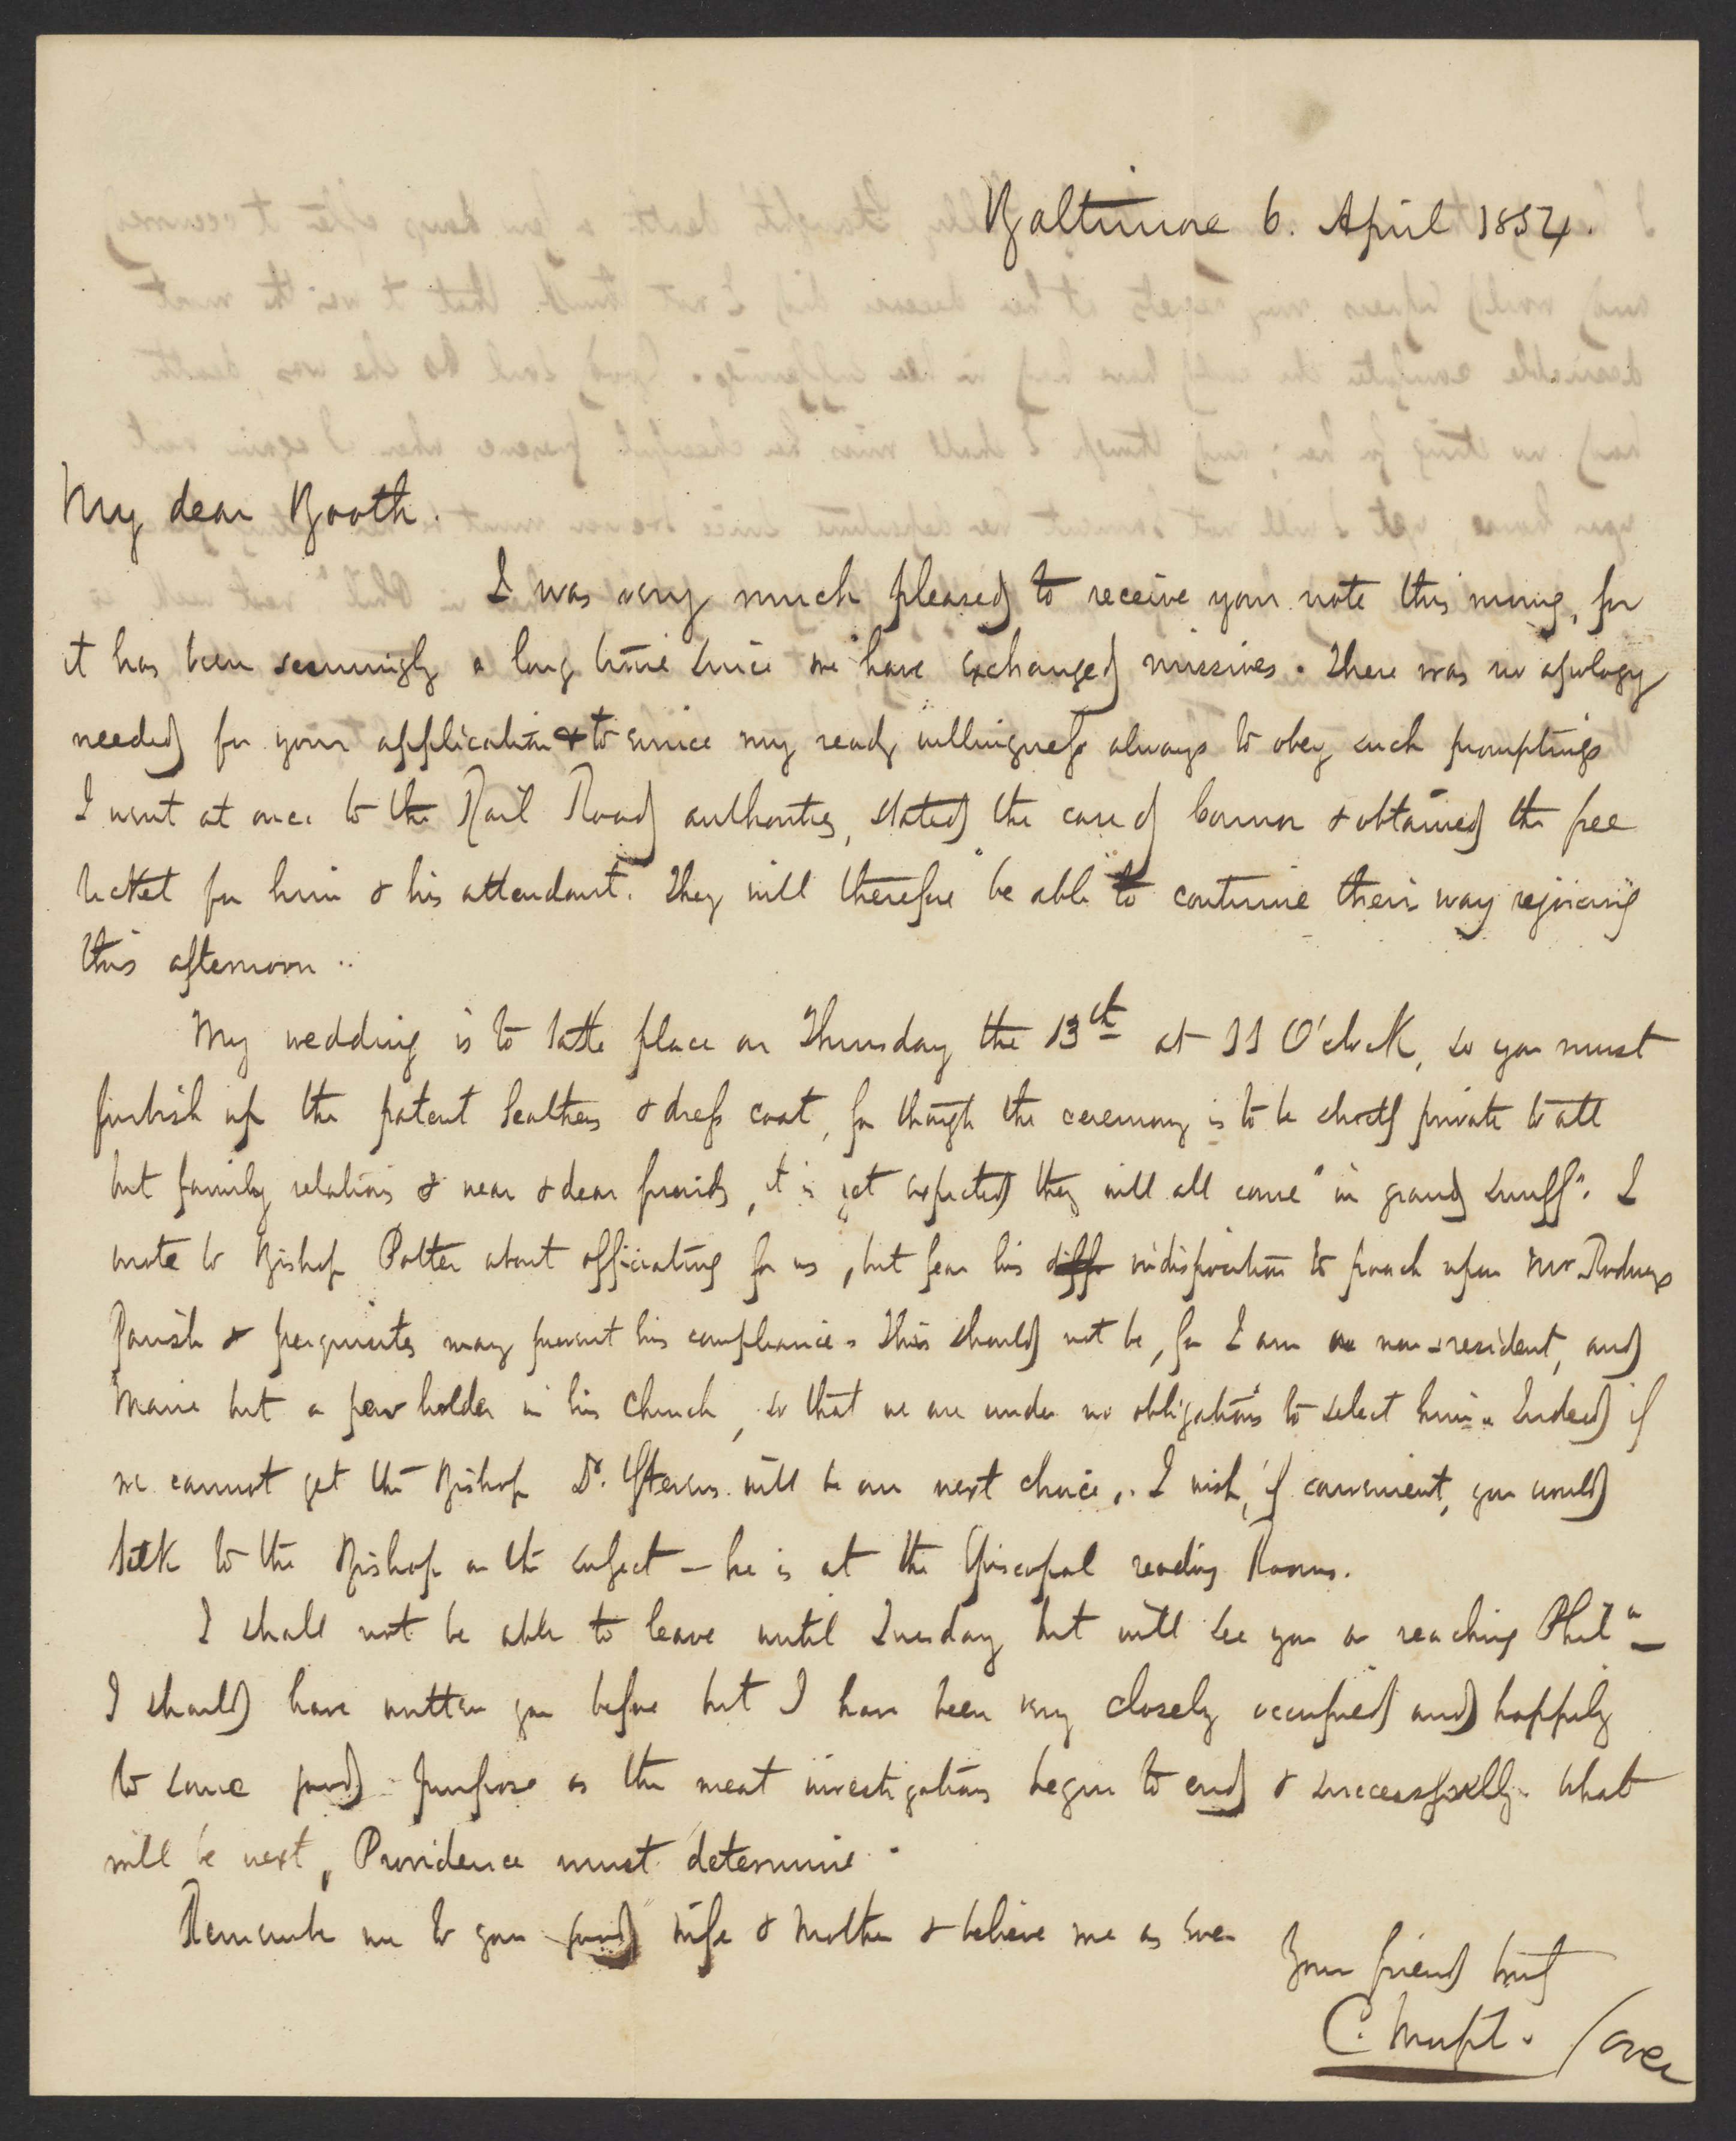 Baltimore 6. April 1854.
My dear Booth.
I was very much pleased to receive your note this morng, for
it has been seemingly a long time since we have exchanged missives. There was no apology
needed for your application & to evince my ready willingness always to obey such promptings
I went at once to the Rail Road authorities, stated the case of Connor & obtained the free
ticket for him & his attendant. They will therefore "be able to continue their way rejoicing"
this afternoon..
My wedding is to take place on Thursday the 13th at 11 O'clock, so you must
furbish up the patent leathers & dress coat, for though the ceremony is to be strictly private to all
but family relations & near & dear friends, it is yet expected they will all come "in grand snuff". I
wrote to Bishop Potter about officiating for us, but fear his indisposition to poach upon Mr
Parish & perquisites may prevent his compliance. This should not be, for I am non-resident, and
Marie but a pew holder in his Church, so that we are under no obligations to select him. Indeed if
we cannot get the Bishop Dr. Stevens will be our next choice. I wish, if convenient, you would
talk to the Bishop on the subject – he is at the Episcopal reading Rooms.
I shall not be able to leave until Tuesday but will see you on reaching Phila –
I should have written you before but I have been very closely occupied and happily
to some good purpose as the meat investigations begin to end & successfully. What
will be next, Providence must determine.
Remember me to your good wife & Mother & believe me as ever
Your friend truly
C. Morfit.
/over